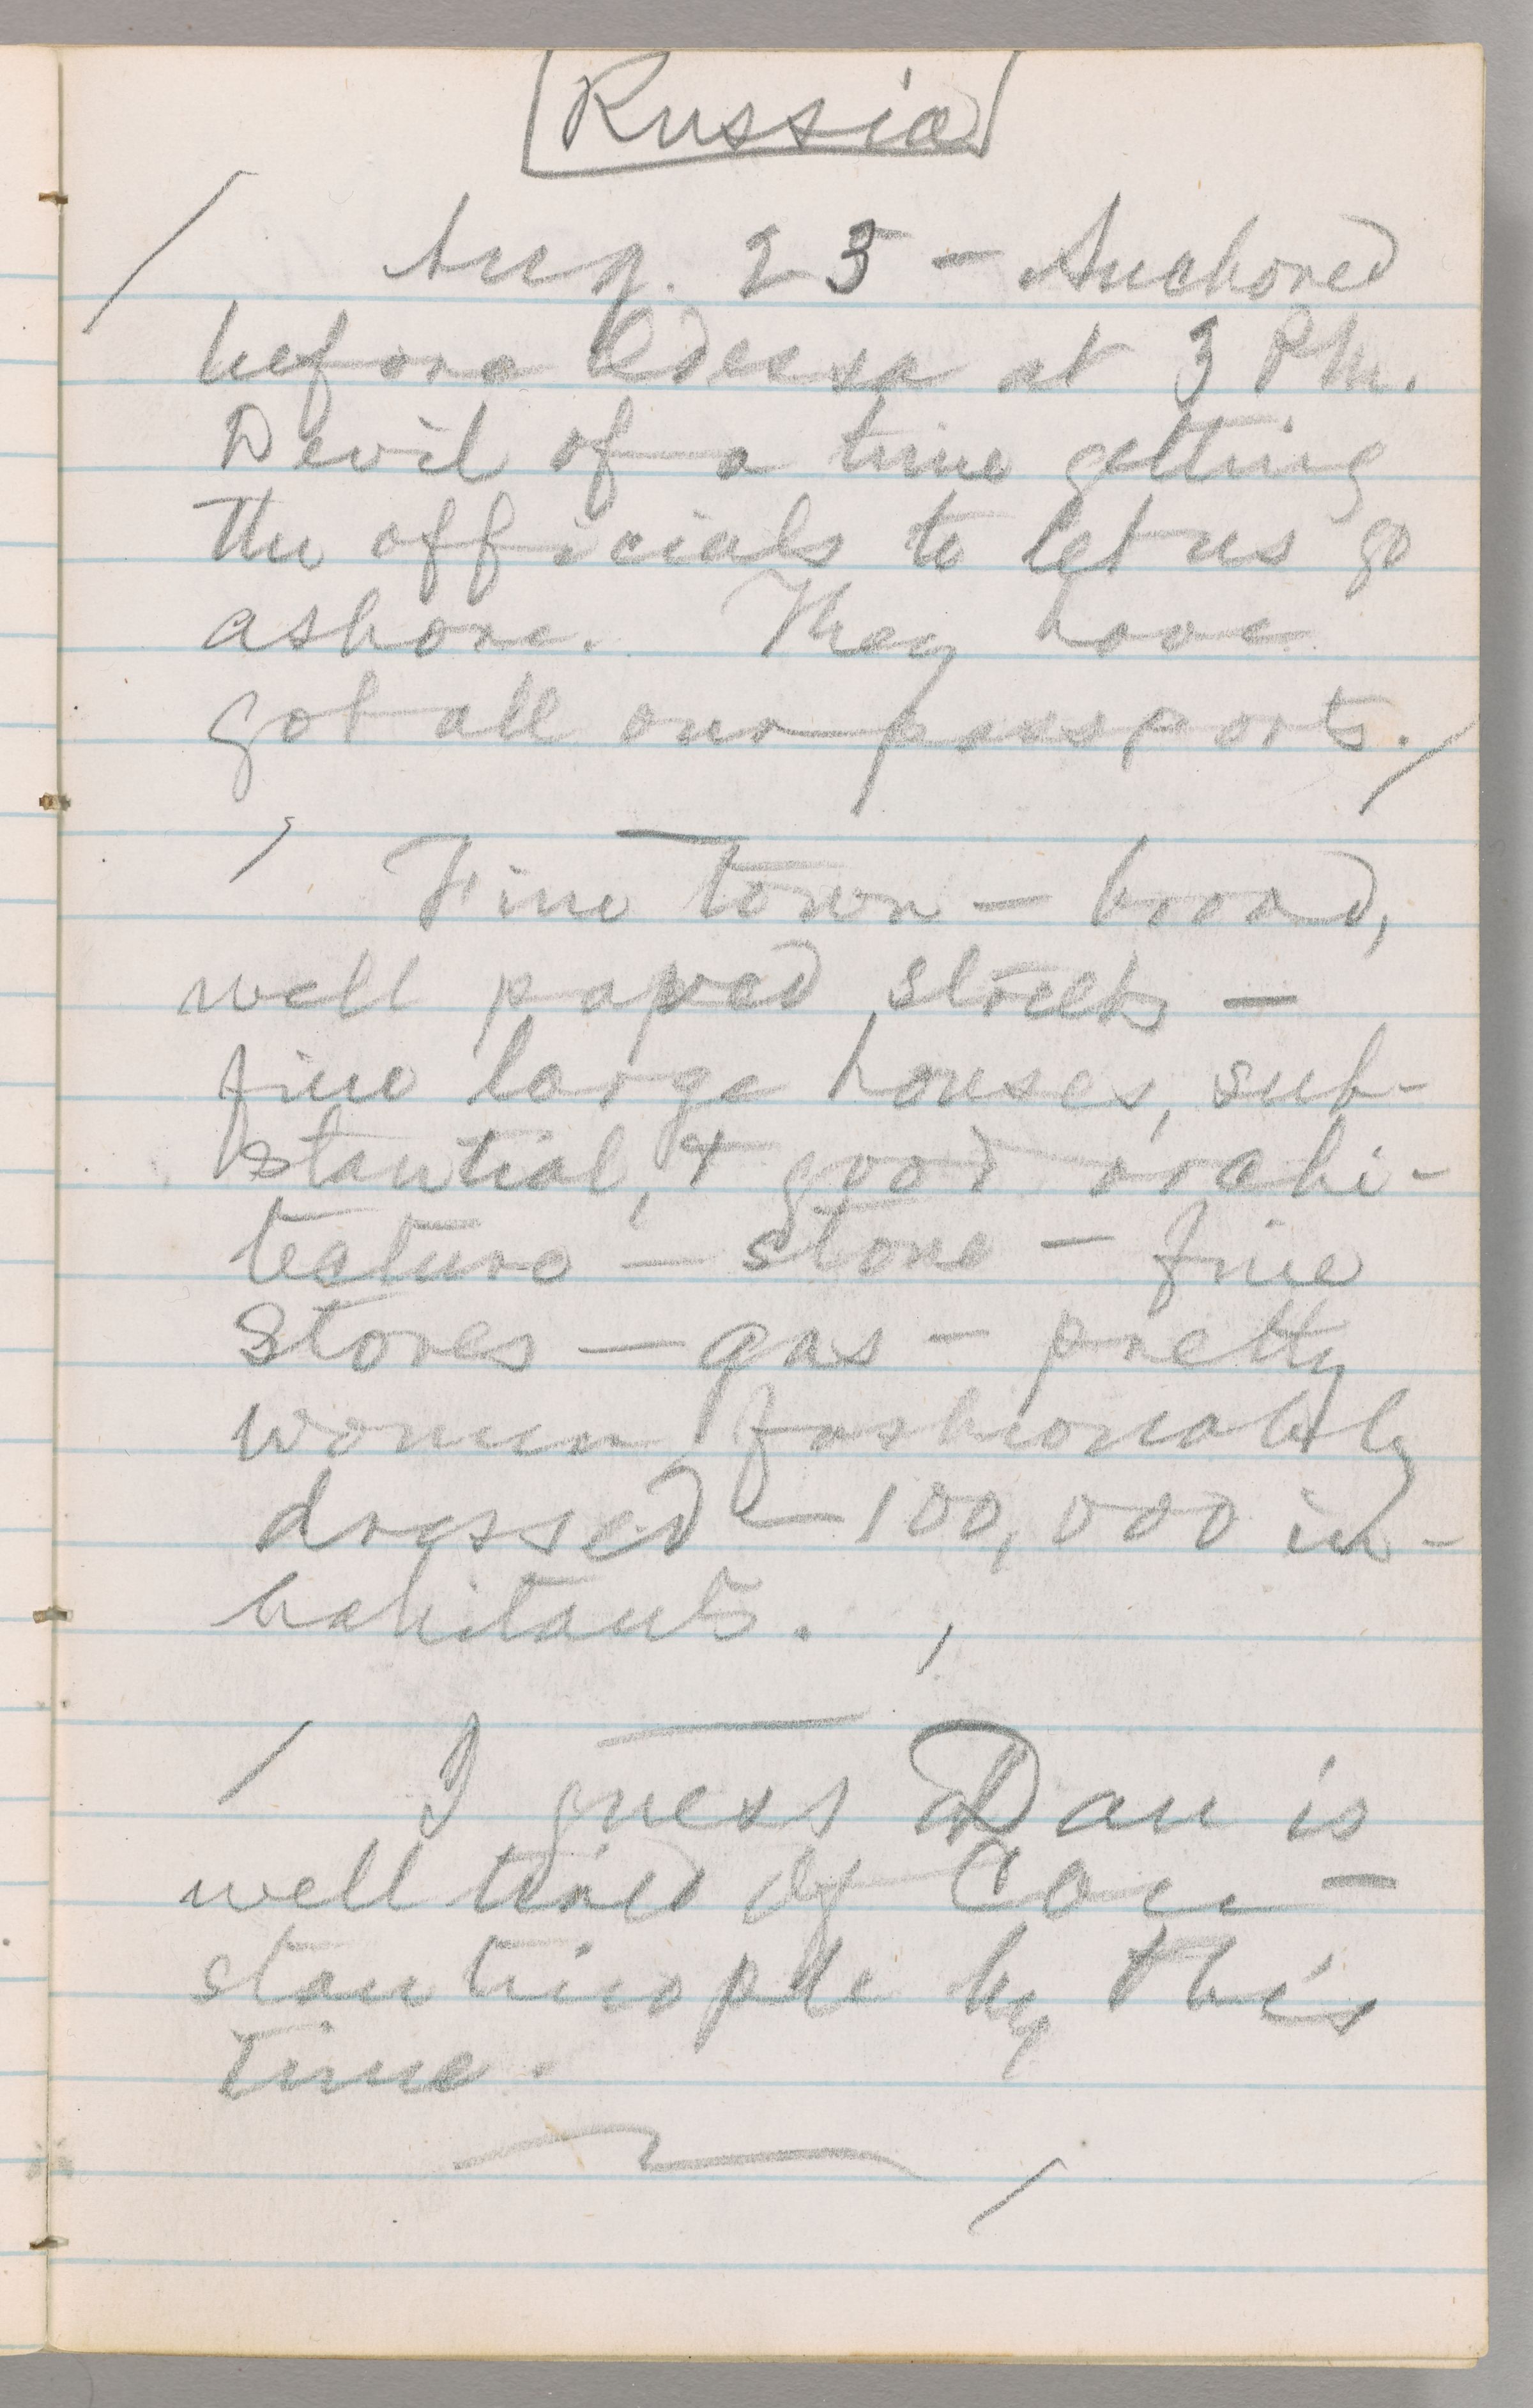 Russia
Aug. 23 – Anchored
before Odessa at 3 PM.
Devil of a time getting
the officials to let us go
ashore. They have
got all our passports.
Fine town – broad,
well paved streets –
fine large houses, sub-
stantial, & good archi-
tecture – stone – fine
stores – gas – pretty
women fashionably
dressed – 100,000 in-
habitants.
I guess Dan is
well tired of Con-
stantinople by this
time.